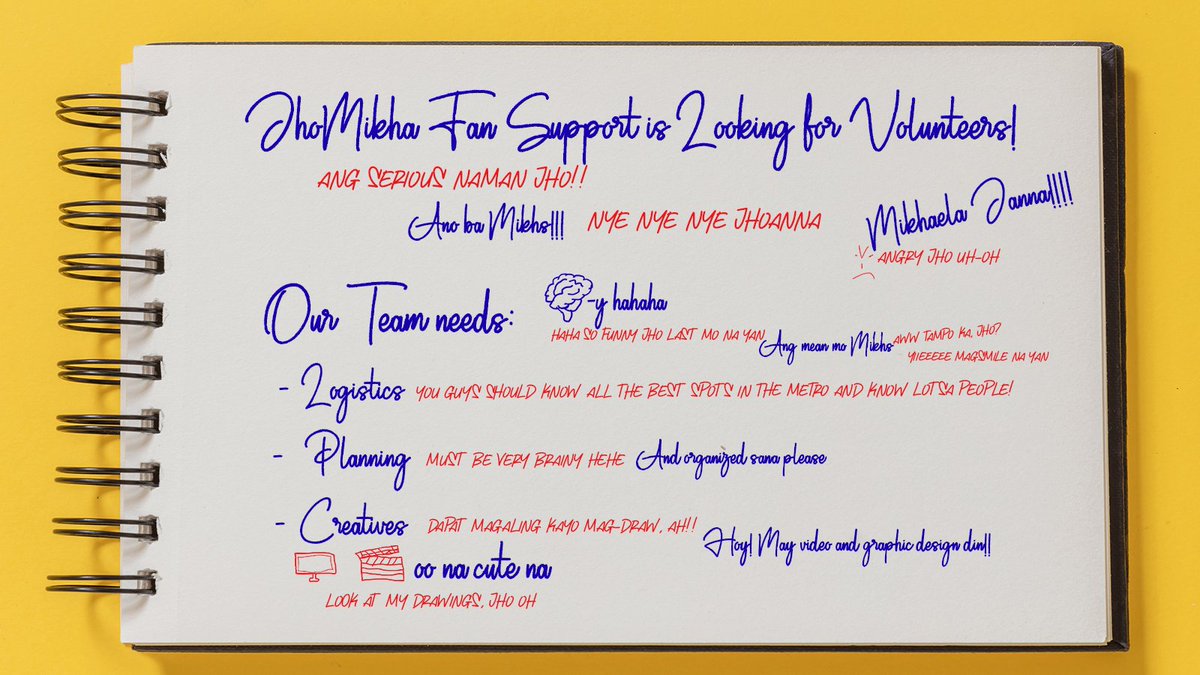 JhoMikha Fan Support is Looking for Volunteers!
ANG SERIOUS NAMAN JHO!!
Ano ba Mikhs!!! NYE NYE NYE JHOANNA
Mikhaela Janna!!!!
ANGRY JHO UH-OH
Our Team needs: -y hahaha
HAHA SO FUNNY JHO LAST MO NA YAN
Ang mean mo Mikhs AWW TAMPO KA, JHO?
YIIEEEEE MAGSMILE NA YAN
- Logistics YOU GUYS SHOULD KNOW ALL THE BEST SPOTS IN THE METRO AND KNOW LOTSA PEOPLE!
- Planning MUST BE VERY BRAINY HEHE And organized sana please
- Creatives DAPAT MAGALING KAYO MAG-DRAW, AH!!
Hoy! May video and graphic design din!!
oo na cute na
LOOK AT MY DRAWINGS, JHO OH